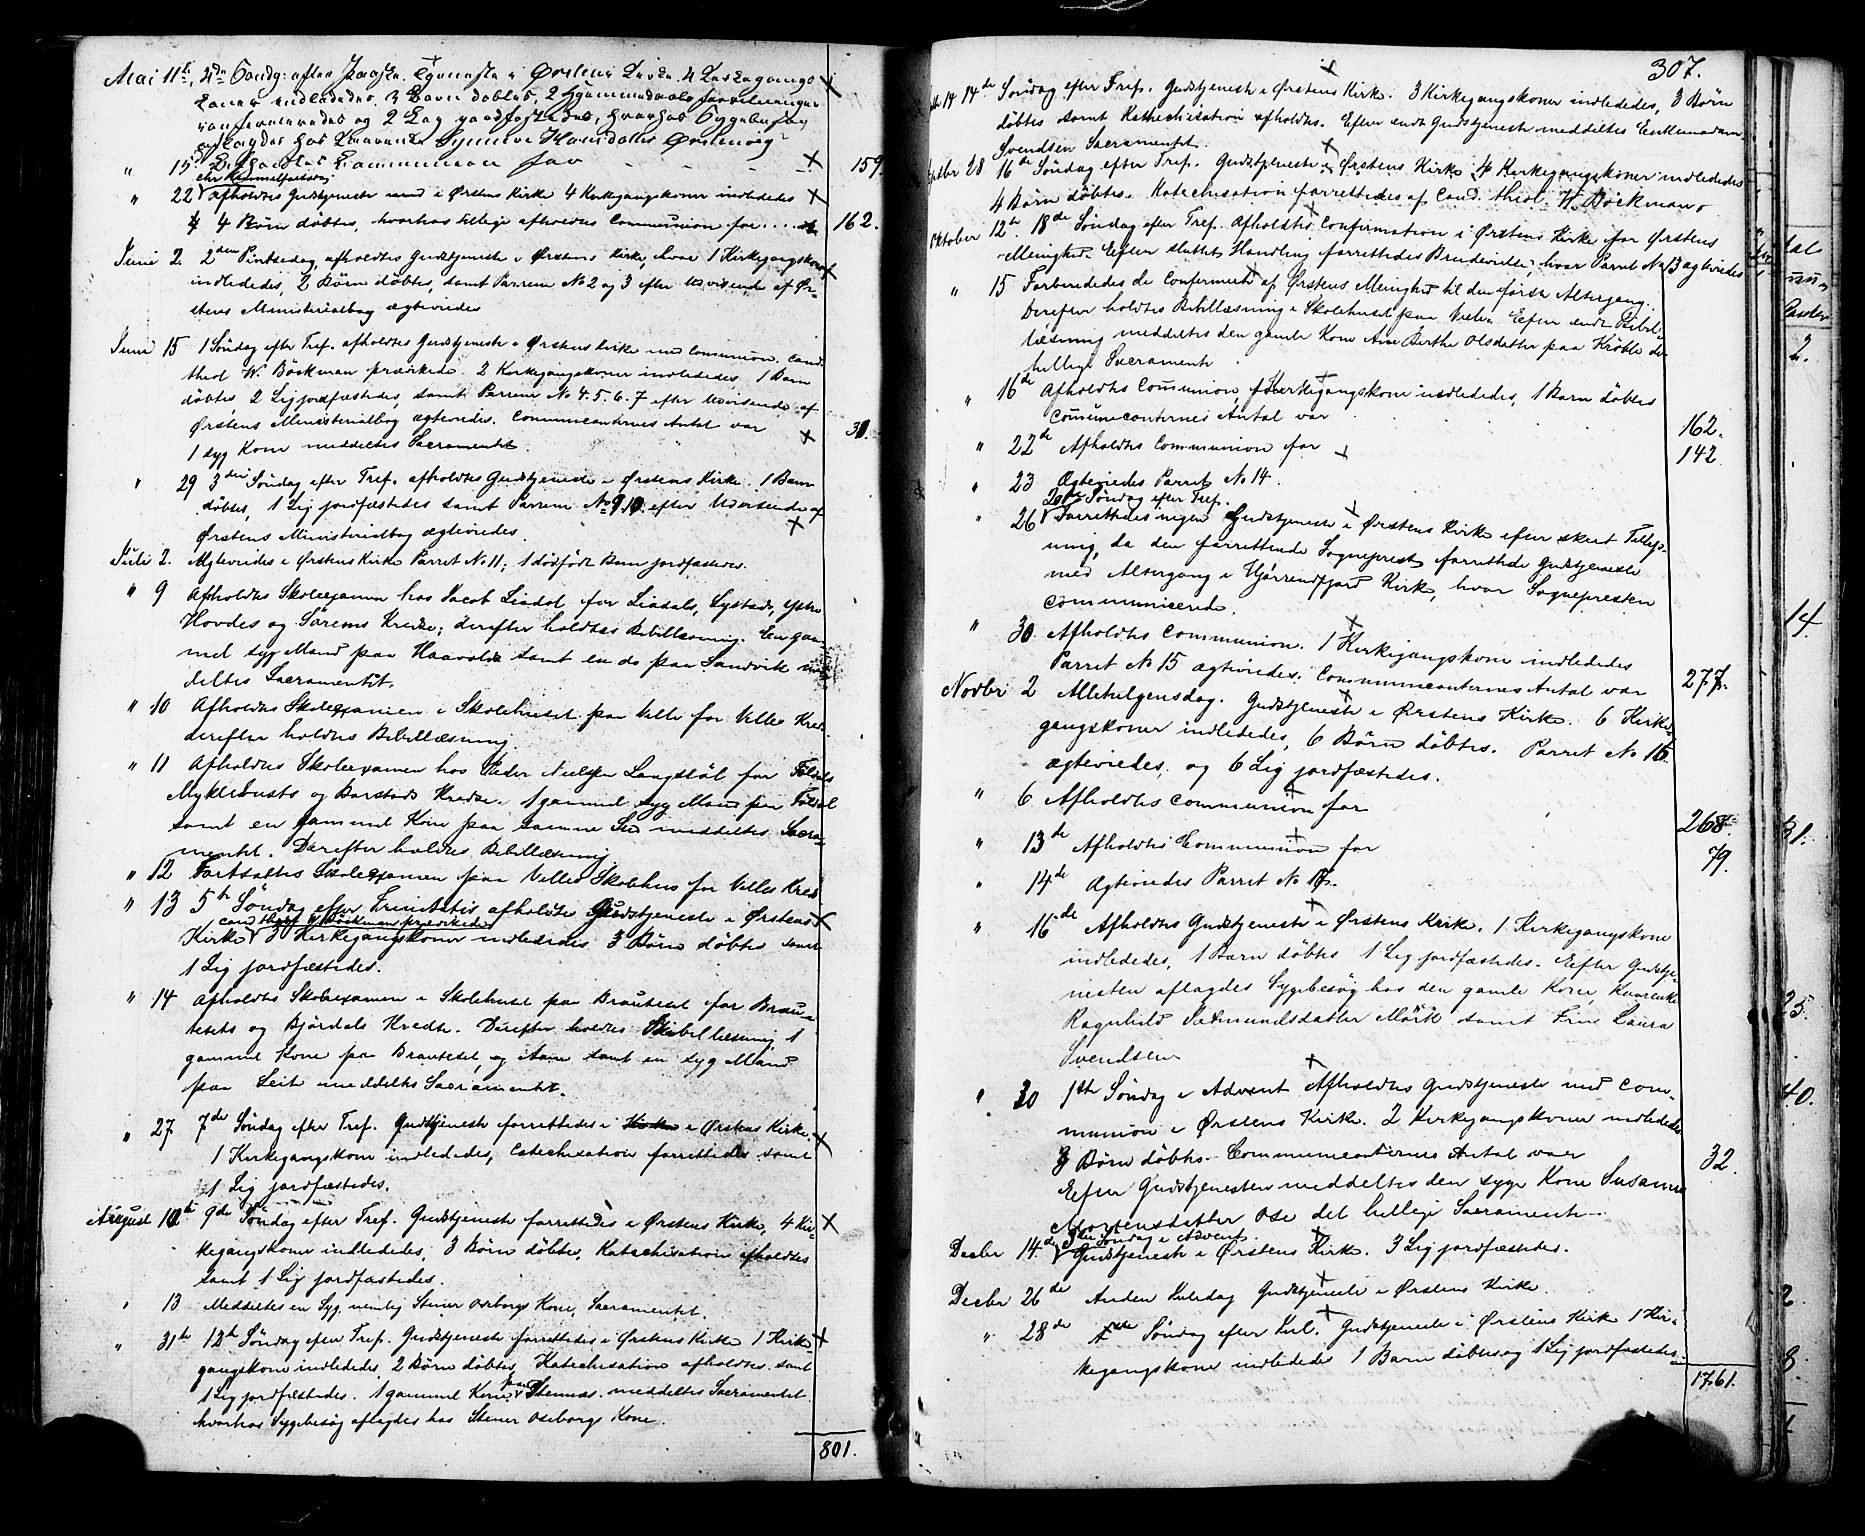 Mai 11te, 4de Søndg: efter Paaske. Tjeneste i Ørstens Kirke. 4 Kirkegangs
Koner indlededes. 3 Børn døbtes, 2 hjemmedøbte
og 2 Lig jordfæstedes, hvorhos Sygebesøg
aflagdes hos
" 15. Communion for - - 159.
Chr Himmelfartsdag
" 22 afholdtes Gudstjeneste med i Ørstens Kirke 4 Kirkegangskoner indlededes
4 Børn døbtes, hvorhos tillige afholdtes Communion for .... 162.
Juni 2. 2den Pintsedag, afholdtes Gudstjeneste i Ørstens Kirke, hvor 1 Kirkegangskone
indlededes, 2 Børn døbtes, samt Parrene No 2 og 3 efter Udvisende af Ør-
stens Ministerialbog ægteviedes
Juni 15 1 Søndag efter Tref. afholdtes Gudstjeneste i Ørstens Kirke med Communion, Cand.
theol W. Böckman prædikede. 2 Kirkegangskoner indlededes, 1 Barn
døbtes 2 Lig jordfæstedes, samt Parrene No 4. 5. 6. 7 efter Udvisende af
Ørstens Ministerialbog ægteviedes. Communicanternes Antal var 31.
1 syg Kone meddeltes Sacramentet.
" 29 3die Søndag efter Tref. afholdtes Gudstjeneste i Ørstens Kirke. 1 Barn
døbtes, 1 Lig jordfæstedes samt Parrene No 9. 10. efter Udvisende af
Ørstens Ministerialbog ægteviedes.
Juli 2. Ægteviedes i Ørstens Kirke Parret No 11, 1 dødfødt Barn jordfæstedes.
" 9 Afholdtes Skoleexamen hos Jacob Liadal for Liadals, Systads, Ytre
Hovdes og Sørems Kredse; derefter holdtes Bibellæsning. En gam-
mel syg Mand paa Haavolds samt en do paa Sandvik med-
deltes Sacramentet.
" 10 Afholdtes Skoleexamen i Skolehuset paa Velle for Velle Kreds
derefter holdtes Bibellæsning.
" 11 Afholdtes Skoleexamen hos Peder Nielsen Langstöl for Fölsdals
Myklebusts og Barstads Kredse. 1 gammel syg Mand paa Fölsdal
samt en gammel Kone paa samme Sted meddeltes Sacra-
mentet. Derefter holdtes Bibellæsning.
" 12 Fortsattes Skoleexamen paa Velles Skolehus for Velles Kreds
" 13 5te Söndag efter Trinitatis afholdtes Gudstjeneste i Ørstens
cand theol W Böckman prædikede
Kirke 3 Kirkegangskoner indlededes 3 Börn döbtes samt
1 Lig jordfæstedes.
" 14 Afholdtes Skoleexamen i Skolehuset paa Brauteset for Brau-
tesets og Björdals Kredse. Derefter holdes Bibellæsning, 1
gammel Kone paa Brauteset, og Aam samt en syg Mand
paa Leite meddeltes Sacramentet.
" 27 7de Söndag efter Tref. Gudstjeneste forrettedes i Ørstens Kirke.
1 Kirkegangskone indlededes, Catechisation forrettedes samt
1 Lig jordfæstedes.
August 10de 9de Söndag efter Tref. Gudstjeneste forrettedes i Ørstens Kirke, 4 Kir-
kegangskoner indlededes, 3 Børn döbtes, Katechisation afholdtes
samt 1 Lig jordfæstedes.
" 13 Meddeltes en Syg, nemlig Steiner Oseborgs Kone, Sacramentet.
" 31te 12te Söndag efter Tref. Gudstjeneste forrettedes i Ørstens Kirke 1 Kirke-
gangskone indlededes, 2 Børn döbtes, Katechisation afholdtes samt
1 Lig jordfæstedes. 1 gammel Kone paa Stennæs meddeltes Sacramentet.
hvorhos Sygebesög aflagdes hos Steiner Oseborgs Kone.
801.
307.
14 14de Söndag efter Tref. Gudstjeneste i Ørstens Kirke. 3 Kirkegangskoner indlededes, 3 Börn
döbtes samt Katechisation afholdtes. Efter endt Gudstjeneste meddeltes Enkemadam
Svendsen Sacramentet.
Septbr 28 16de Söndag efter Tref. Gudstjeneste i Ørstens Kirke 4 Kirkegangskoner indlededes
4 Börn döbtes. Katechisation forrettedes af Cand. theol. W. Böckman
Oktober 12te 18de Söndag efter Tref. Afholdtes Confirmation i Ørstens Kirke for Ørstens
Menighed. Efter sluttet Handling forrettedes Brudevielse, hvor Parret No 13 ægteviedes
" 15 Forberededes de Confirmerede af Ørstens Menighed til den förste Altergang.
Derefter holdtes Bibellæsning i Skolehuset paa Velle. Efter endt Bibel-
læsning meddeltes den gamle Kone Ane Berthe Olsdatter paa Kröble det
hellige Sacramente.
" 16de Afholdtes Communion, 1 Kirkegangskone indlededes, 1 Barn döbtes
Communicanternes Antal var 162.
" 22de Afholdtes Communion for 142
" 23 Ægteviedes Parret No 14.
20de Söndag efter Tref.
" 26 Forrettedes ingen Gudstjeneste i Ørstens Kirke efter skeet Tillys-
ning, da den forrettende Sogneprest forrettede Gudstjeneste
med Altergang i Hjörrendfjord Kirke, hvor Sognepresten
communicerede.
" 30. Afholdtes Communion. 1 Kirkegangskone indlededes
Parret No 15 ægteviedes. Communicanternes Antal var 277.
Novbr 2 Allehelgensdag. Gudstjeneste i Ørstens Kirke. 6 Kirke-
gangskoner indlededes, 6 Börn döbtes. Parret No 16
ægteviedes, og 6 Lig jordfæstedes.
" 6 Afholdtes Communion for 268
" 13de Afholdtes Communion for 79.
" 14de Ægteviedes Parret No 17.
" 16de Afholdtes Gudstjeneste i Ørstens Kirke. 1 Kirkegangskone
indlededes, 1 Barn döbtes 1 Lig jordfæstedes. Efter Gudstje-
nesten aflagdes Sygebesög hos den gamle Kone
Ragnhild Sætmundsdatter Mörk samt Frue Laura
Svendsen
" 30 1ste Söndag i Advent Afholdtes Gudstjeneste med Com-
munion i Ørstens Kirke. 2 Kirkegangskoner indlededes
3 Börn döbtes. Communicanternes Antal var 32.
Efter Gudstjenesten meddeltes den syge Kone Susanne
Mortensdatter Ose det hellige Sacramente.
3die Söndag i Advent.
Decbr 14de Gudstjeneste i Ørstens Kirke. 3 Lig jordfæstedes.
Decbr 26de Anden Juledag Gudstjeneste i Ørstens Kirke.
" 28de Söndag efter Jul. Gudstjeneste i Ørstens Kirke 1 Kir-
kegangskone indlededes 1 Barn döbtes og 1 Lig jordfæstedes.
1761.
2.
14.
31.
25.
40.
2
8.